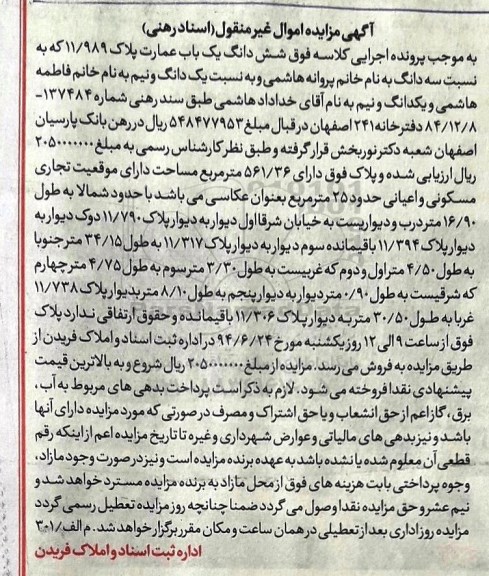 آگهی مزایده اموال غیر منقول (اسناد رهنی)
به موجب پرونده اجرایی کلاسه فوق شش دانگ یک باب عمارت پلاک ۱۱/۹۸۹ که به
نسبت سه دانگ به نام خانم پروانه هاشمی و به نسبت یک دانگ و نیم به نام خانم فاطمه
هاشمی و یکدانگ و نیم به نام آقای خداداد هاشمی طبق سند رهنی شماره ۱۳۷۴۸۴-
۸۴/۱۲/۸ دفترخانه ۲۴۱ اصفهان در قبال مبلغ ۵۴۸۴۷۷۹۵۳ ریال در رهن بانک پارسیان
اصفهان شعبه دکتر نوربخش قرار گرفته و طبق نظر کارشناس رسمی به مبلغ ۲۰۵۰۰۰۰۰۰۰
ریال ارزیابی شده و پلاک فوق دارای ۵۶۱/۳۶ مترمربع مساحت دارای موقعیت تجاری
مسکونی و اعیانی حدود ۲۵ مترمربع بعنوان عکاسی می باشد با حدود شمالا به طول
۱۶/۹۰ متر درب و دیواریست به خیابان شرقا اول دیوار به دیوار پلاک ۱۱/۷۹۰ دوک دیوار به
دیوار پلاک ۱۱/۳۹۴ باقیمانده سوم دیوار به دیوار پلاک ۱۱/۳۱۷ به طول ۳۴/۱۵ متر جنوبا
به طول ۴/۵۰ متر اول و دوم که غربیست به طول ۳/۳۰ متر سوم به طول ۴/۷۵ متر چهارم
که شرقیست به طول ۰/۹۰ متر دیوار به دیوار پنجم به طول ۸/۱۰ متر بدیوار پلاک ۱۱/۷۳۸
غربا به طول ۳۰/۵۰ متر به دیوار پلاک ۱۱/۳۰۶ باقیمانده و حقوق ارتفاقی ندارد پلاک
فوق از ساعت ۹ الی ۱۲ روز یکشنبه مورخ ۹۴/۶/۲۴ در اداره ثبت اسناد و املاک فریدن از
طریق مزایده به فروش می رسد. مزایده از مبلغ ۲۰۵۰۰۰۰۰۰۰ ریال شروع و به بالاترین قیمت
پیشنهادی نقدا فروخته می شود. لازم به ذکر است پرداخت بدهی های مربوط به آب،
برق، گاز اعم از حق انشعاب و یا حق اشتراک و مصرف در صورتی که مورد مزایده دارای آنها
باشد و نیز بدهی های مالیاتی و عوارض شهرداری و غیره تا تاریخ مزایده اعم از اینکه رقم
قطعی آن معلوم شده یا نشده باشد به عهده برنده مزایده است و نیز در صورت وجود مازاد،
وجوه پرداختی بابت هزینه های فوق از محل مازاد به برنده مزایده مسترد خواهد شد و
نیم عشر و حق مزایده نقدا وصول می گردد ضمنا چنانچه روز مزایده تعطیل رسمی گردد
مزایده روز اداری بعد از تعطیلی در همان ساعت و مکان مقرر برگزار خواهد شد. م الف/۳۰۱
اداره ثبت اسناد و املاک فریدن